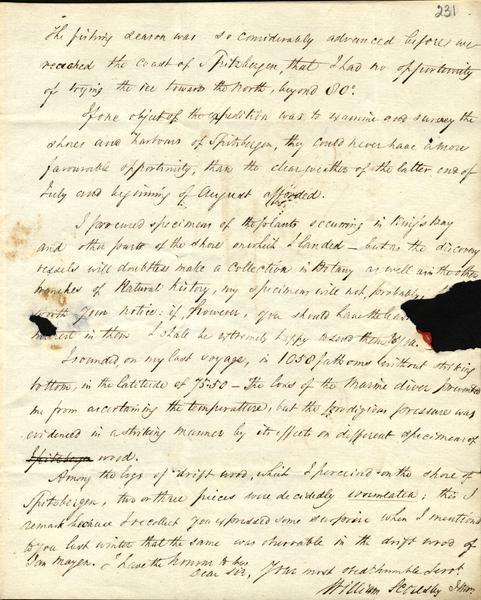 231
The fishing season was so considerably advanced before we
reached the coast of Spitzbergen, that I had no opportunity
of trying the ice towards the north, beyond 80°.
If one object of the expedition was to examine and survey the
shores and harbours of Spitzbergen, they could never have a more
favourable opportunity, than the clear weather of the latter end of
July and beginning of August afforded.
I procured specimens of the plants occurring in King's Bay
and other parts of the shore on which I landed – but as the discovery
vessels will doubtless make a collection in Botany as well as in the other
branches of Natural history, my specimens will not, probably, be
worth your notice: if, however, you should have the least
interest in them I shall be extremely happy to send them to you.
I sounded on my last voyage, in 1058 fathoms without striking
bottom, in the latitude of 75°50 – The loss of the Marine diver prevented
me from ascertaining the temperature, but the prodigious pressure was
evidenced in a striking manner by its effects on different specimens of
Spitzbergen wood.
Among the logs of drift wood, which I perceived on the shore of
Spitzbergen, two or three pieces were decidedly wormeaten; this I
remark because I recollect you expressed some surprise when I mentioned
to you last winter that the same was observable in the drift wood of
Jan Mayen. I have the honour to be,
Dear Sir, Your most obedt humble Servt
William Scoresby Junr.